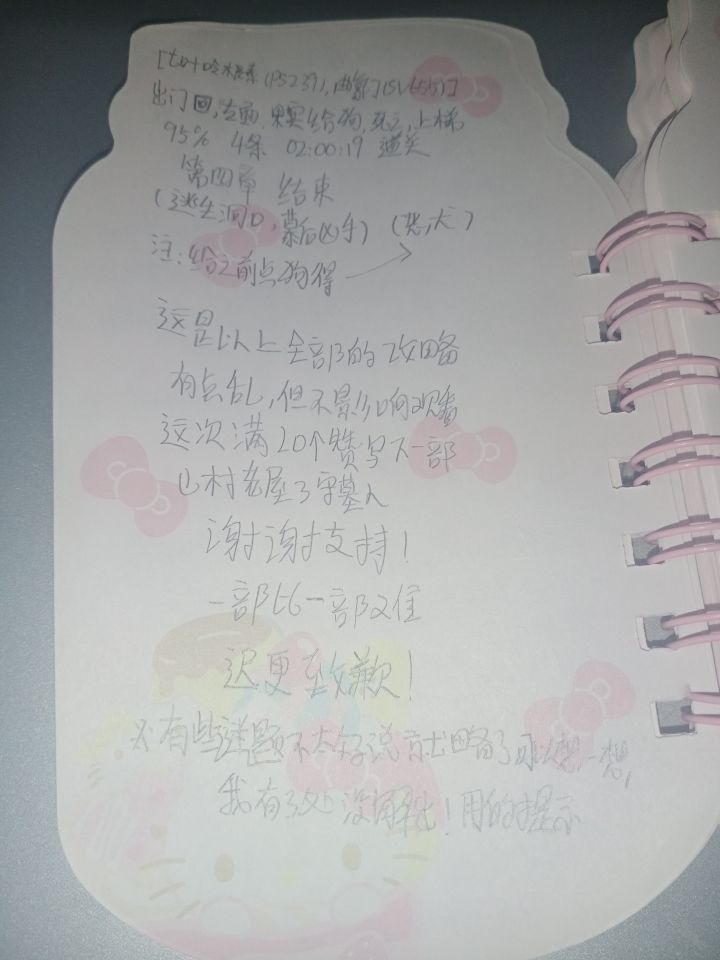 出门回,左面,果实给狗,死亡,上梯
95% 4条 02:00:19 通关
第四章 结束
(逃生洞口,幕后凶手) (恶犬)
注:给之前点狗得
这是以上全部的攻略
有点乱,但不影响观看
这次满20个赞写下一部
山村老屋3守墓人
谢谢支持!
一部比一部难
迟更致歉!
有些谜题不太好说就略了可以想一想,
我有3处没解出!用的提示